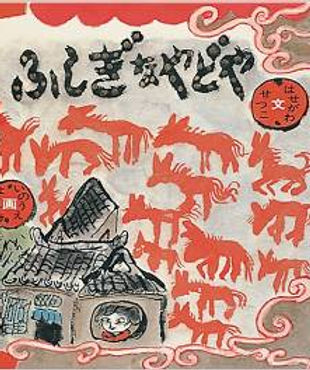 ふしぎなやどや
はせがわ
文
せつこ
いのうえ
画